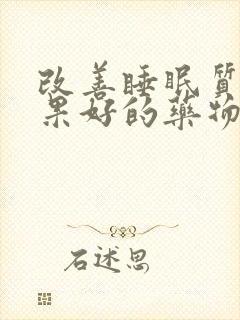 改善睡眠质
果好的药物
石述思